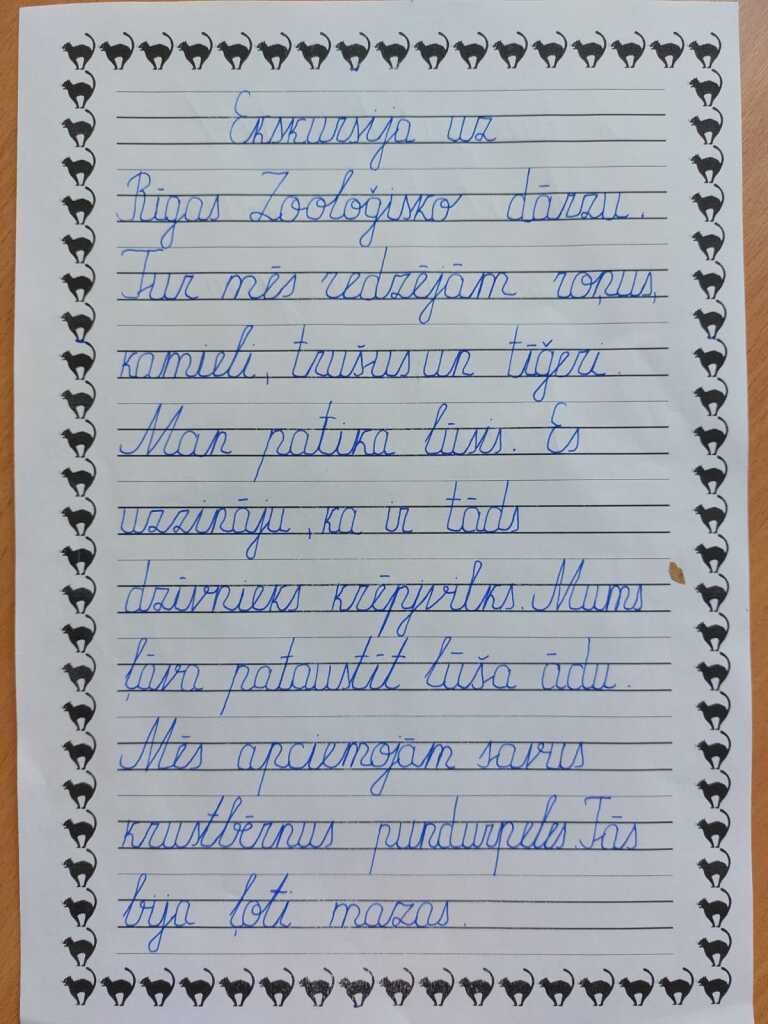 Ekskursija uz
Rīgas Zooloģisko dārzu.
Tur mēs redzējām roņus,
kamieli, trušus un tīģeri.
Man patika lūsis. Es
uzzināju, ka ir tāds
dzīvnieks krēpjvilks. Mums
ļāva pataustīt lūša ādu.
Mēs apciemojām savus
krustbērnus pundurpeles. Tās
bija ļoti mazas.